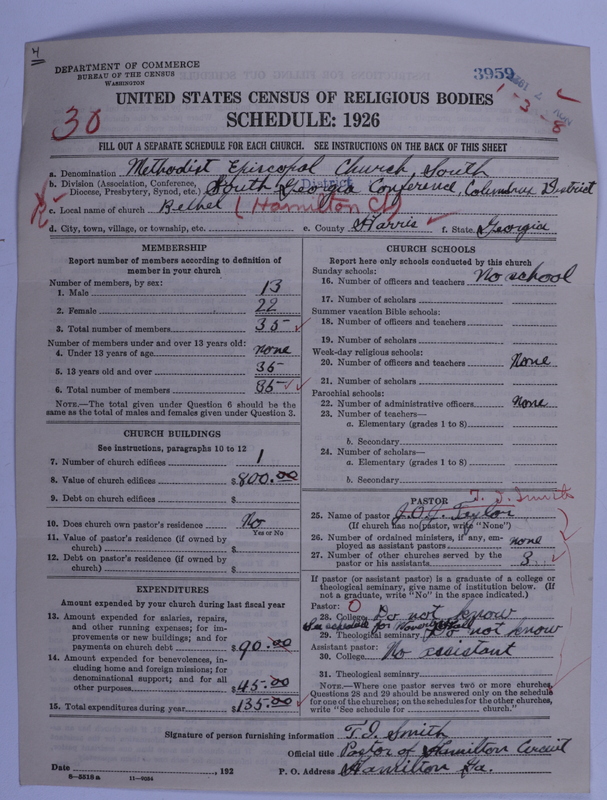 4
DEPARTMENT OF COMMERCE
BUREAU OF THE CENSUS
WASHINGTON
3959
1-3-8
UNITED STATES CENSUS OF RELIGIOUS BODIES
30
SCHEDULE: 1926
FILL OUT A SEPARATE SCHEDULE FOR EACH CHURCH. SEE INSTRUCTIONS ON THE BACK OF THIS SHEET
a. Denomination Methodist Episcopal Church, South
b. Division (Association, Conference, Diocese, Presbytery, Synod, etc.) South Georgia Conference, Columbus District
District
c. Local name of church Bethel (Hamilton Ch)
d. City, town, village, or township, etc. e. County Harris f. State Georgia
MEMBERSHIP
Report number of members according to definition of
member in your church
Number of members by sex:
1. Male 13
2. Female 22
3. Total number of members 35
Number of members under and over 13 years old:
4. Under 13 years of age none
5. 13 years old and over 35
6. Total number of members 35
NOTE.—The total given under Question 6 should be
same as the total of males and females given under Question 3.
CHURCH BUILDINGS
See instructions, paragraphs 10 to 12
7. Number of church edifices 1
8. Value of church edifices $800.00
9. Debt on church edifices $
10. Does church own pastor's residence No
Yes or No
11. Value of pastor's residence (if owned by
church) $
12. Debt on pastor's residence (if owned by
church) $
EXPENDITURES
Amount expended by your church during last fiscal year
13. Amount expended for salaries, repairs,
and other running expenses; for im-
provements or new buildings; and for
payments on church debt $90.00
14. Amount expended for benevolences, in-
cluding home and foreign missions; for
denominational support; and for all
other purposes $45.00
15. Total expenditures during year $135.00
CHURCH SCHOOLS
Report here only schools conducted by this church
Sunday schools:
16. Number of officers and teachers No school
17. Number of scholars
Summer vacation Bible schools:
18. Number of officers and teachers
19. Number of scholars
Week-day religious schools:
20. Number of officers and teachers None
21. Number of scholars
Parochial schools:
22. Number of administrative officers None
23. Number of teachers—
a. Elementary (grades 1 to 8)
b. Secondary
24. Number of scholars—
a. Elementary (grades 1 to 8)
b. Secondary
PASTOR
T. I. Smith
25. Name of pastor J.O.J. Taylor
(If church has no pastor, write "None")
26. Number of ordained ministers, if any, em-
ployed as assistant pastors none
27. Number of other churches served by the
pastor or his assistants 3
If pastor (or assistant pastor) is a graduate of a college or
theological seminary, give name of institution below. (If
not a graduate, write "No" in the space indicated.)
Pastor: O
28. College Do not know
See schedule for
29. Theological seminary Do not know
Assistant pastor:
30. College No assistant
31. Theological seminary
NOTE.—Where one pastor serves two or more churches,
Questions 28 and 29 should be answered only on the schedule
for one of the churches; on the schedules for the other churches,
write "See schedule for church."
Signature of person furnishing information T.I. Smith
Official title Pastor of Hamilton Circuit
Date , 192 P. O. Address Hamilton Ga.
8—5518a 11—9054